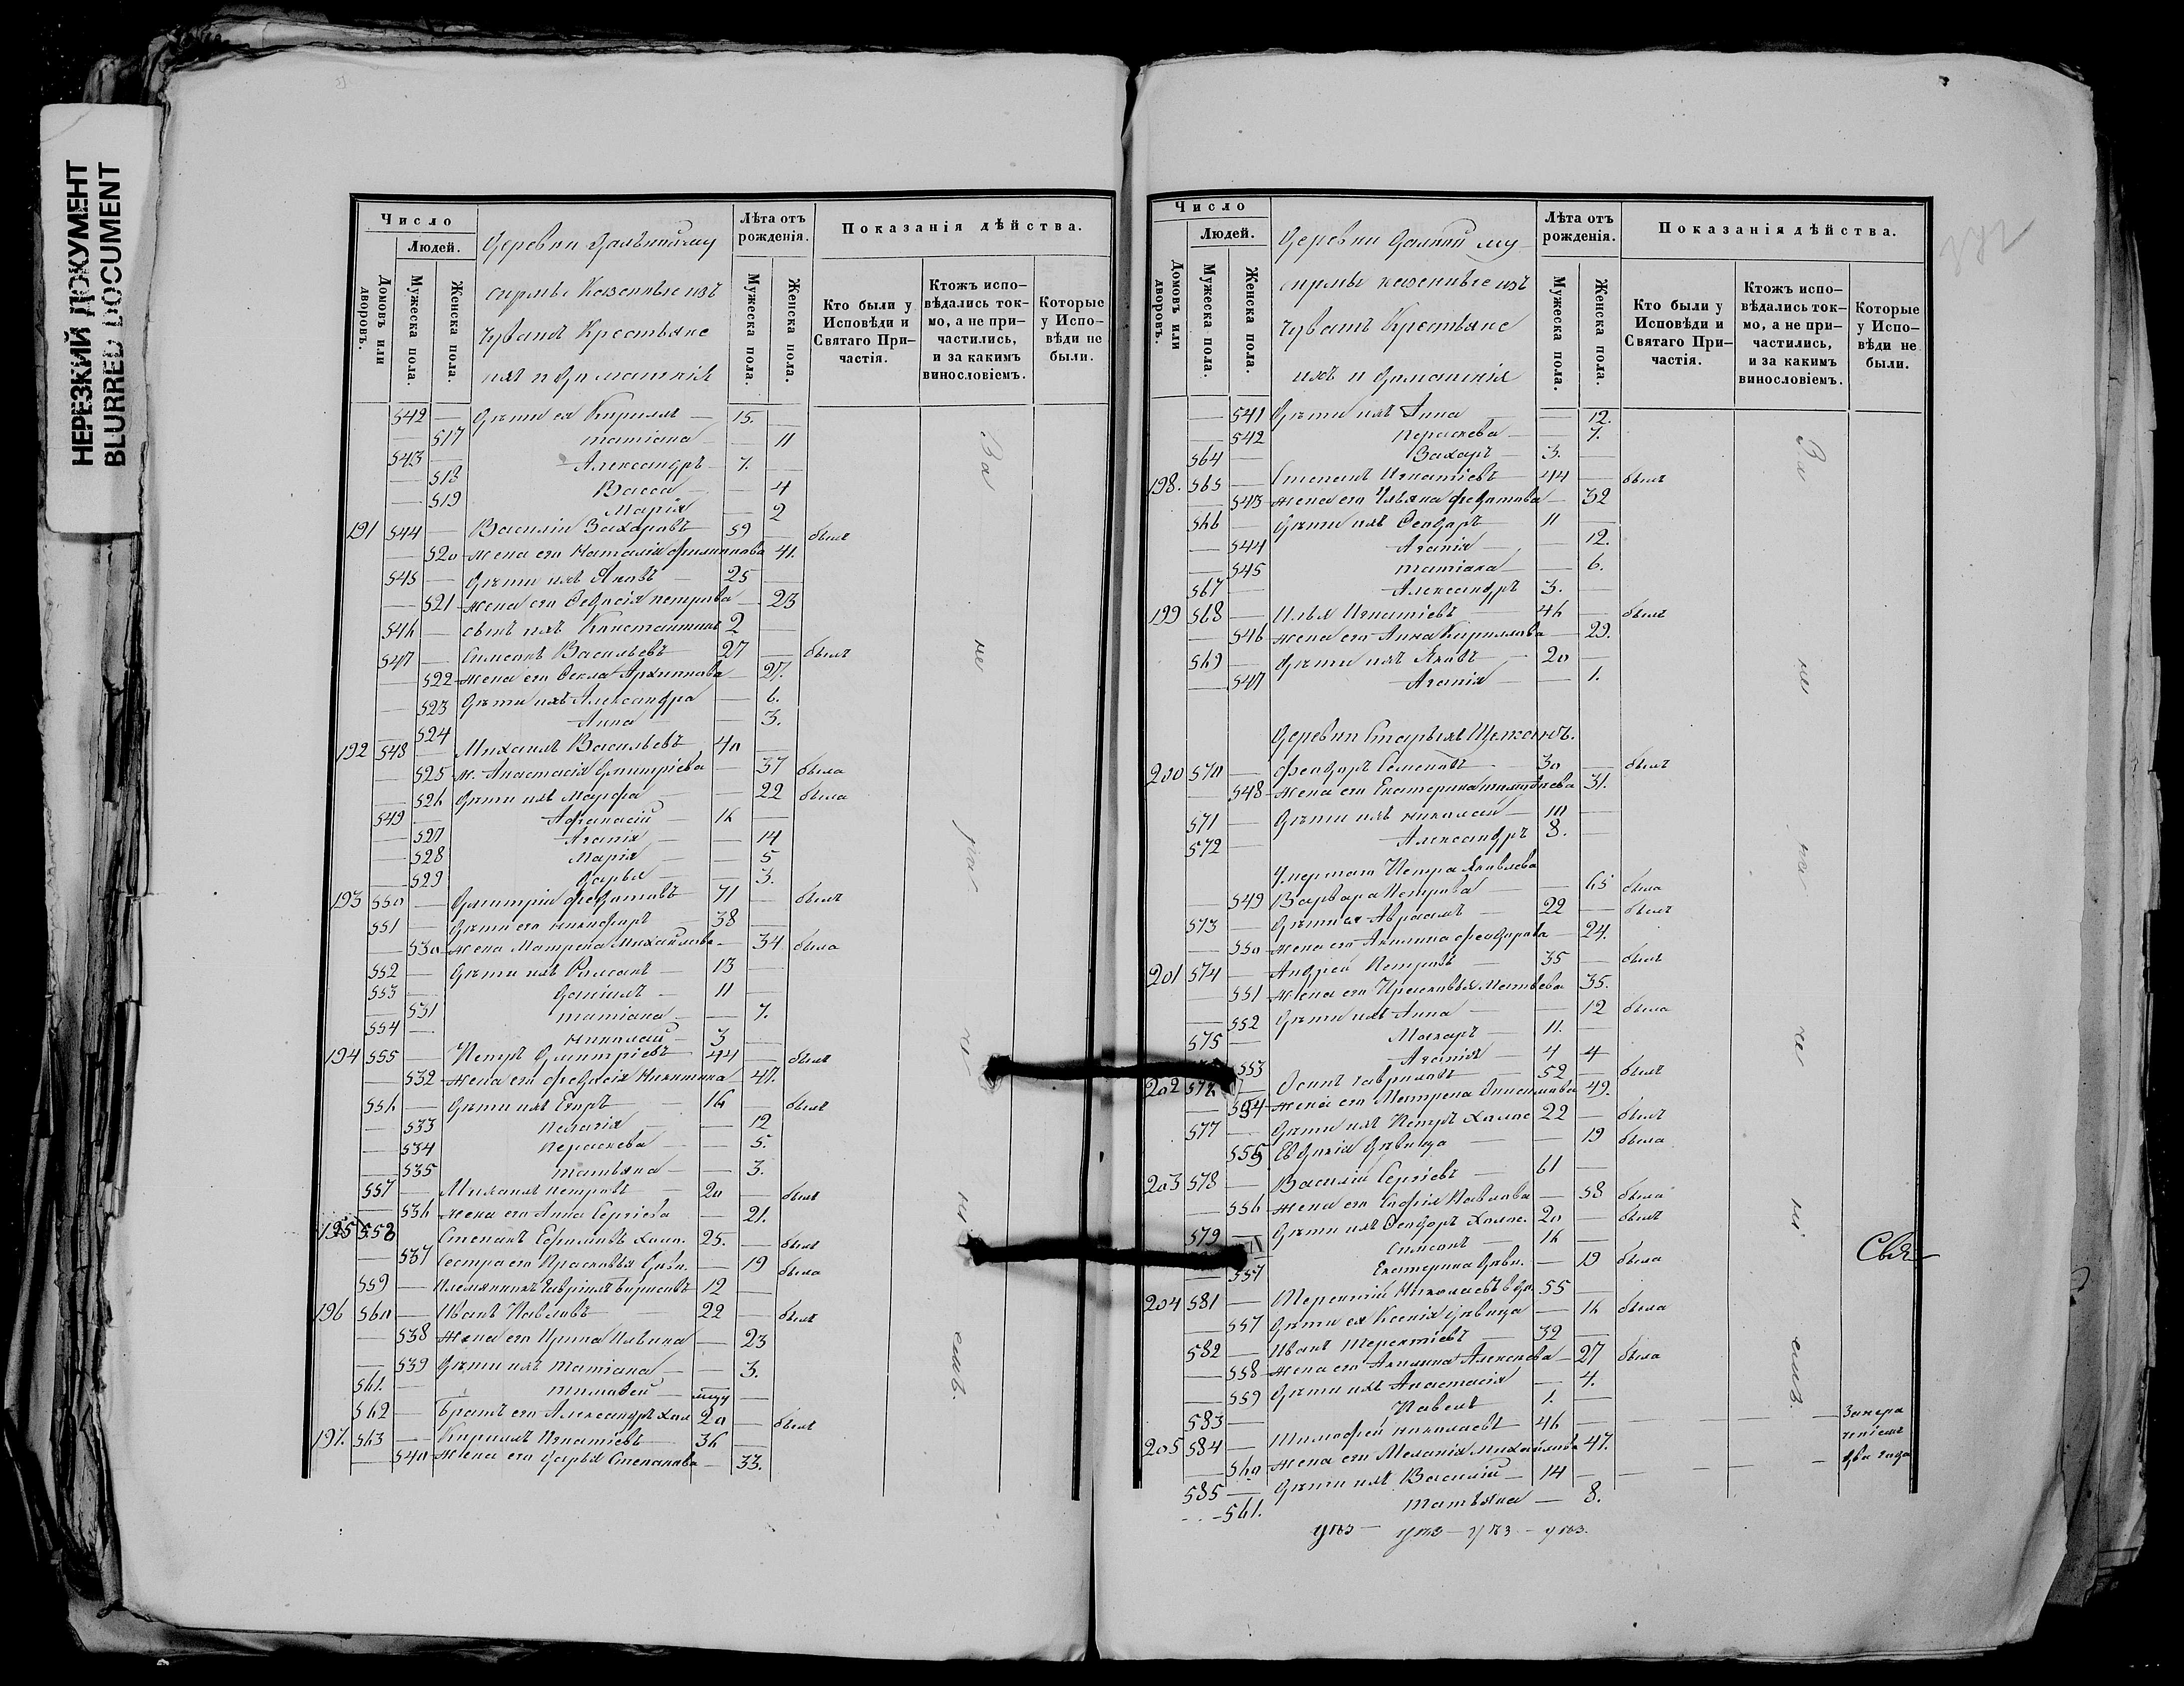 НЕРЕЗКИЙ ДОКУМЕНТ
BLURRED DOCUMENT
Число
Людей.
Домовъ или дворовъ.
Мужеска пола.
Женска пола.
Казенные изъ
Чувашъ Крестьяне
ихъ и домашнія
Лѣта отъ рожденія.
Мужеска пола.
Женска пола.
Показанія дѣйства.
Кто были у Исповѣди и Святаго Причастія.
Ктожъ исповѣдались токмо, а не причастились, и за какимъ винословіемъ.
Которые у Исповѣди не были.
542 — Дѣти ея Кириллъ — 15.
— 517 Татіана — 11
543 — Александръ 7. —
— 518 Васса — 4
— 519 Марія — 2
191 544 — Василій Захаровъ 59 — былъ
— 520 жена его Наталія Филиппова 41.
545 — Дѣти ихъ Яковъ — 25 —
— 521 жена его Ѳедосія Петрова — 23
546 — сынъ ихъ Константинъ 2 —
547 — Симеонъ Васильевъ 27 — былъ
— 522 жена его Ѳекла Архиппова — 27.
— 523 Дѣти ихъ Александра — 6.
— 524 Анна — 3.
192 548 — Михаилъ Васильевъ 40 —
— 525 ж. Анастасія Димитріева — 37 была
— 526 Дѣти ихъ Марфа — 22 была
549 — Афанасій — 16 —
— 527 Агапія — 14
— 528 Марія — 5
— 529 Дарья — 3.
193 550 — Димитрій Федотовъ 71 — былъ
551 — Дѣти его Никифоръ 38 —
— 530 жена Матрена Михайлова — 34 была
552 — Дѣти ихъ Романъ — 13 —
553 — Даніилъ — 11 —
— 531 Татіана — 7.
554 — Николай — 3 —
194 555 — Петръ Димитріевъ 44 — былъ
— 532 жена его Федосія Никитина 47.
556 — Дѣти ихъ Егоръ — 16 — былъ
— 533 Пелагія — 12
— 534 Пераскева — 5.
— 535 Татьяна — 3.
557 — Михаилъ Петровъ — 20 — былъ
— 536 жена его Анна Сергіева — 21.
195 558 Степанъ Ефимовъ холл. 25. — былъ
— 537 Сестра его Прасковья Дѣв. — 19 была
559 — Племянникъ Гавріилъ Борисовъ 12 —
196 560 — Иванъ Павловъ — 22 — былъ
— 538 жена его Ирина Ильина — 23
— 539 Дѣти ихъ Татіана — 3.
561. — Тимофей —
562 — Братъ его Александръ хол 20 — былъ
197. 563 — Кириллъ Игнатіевъ — 36 —
— 540 жена его Дарья Степанова — 33.
За
не
ихъ.
Число
Людей.
Домовъ или дворовъ.
Мужеска пола.
Женска пола.
казенные изъ
Чувашъ Крестьяне
ихъ и домашнія
Лѣта отъ рожденія.
Мужеска пола.
Женска пола.
Показанія дѣйства.
Кто были у Исповѣди и Святаго Причастія.
Ктожъ исповѣдались токмо, а не причастились, и за какимъ винословіемъ.
Которые у Исповѣди не были.
— 541 Дѣти ихъ Анна — 12.
— 542 Пераскева — 7.
564 — Захаръ — 3. —
198. 565 — Степанъ Игнатіевъ — 44 — былъ
— 543 жена его Ульяна Федотова — 32
566 — Дѣти ихъ Ѳеодоръ — 11 —
— 544 Агапія — 12.
— 545 Татіана — 6.
567 — Александръ 3. —
199 568 — Илья Игнатіевъ — 46 — былъ
— 546 жена его Анна Кириллова — 29.
569 — Дѣти ихъ Яковъ — 20 —
— 547 Агапія — 1.
Деревни Старыхъ
200 570 — Феодоръ Семеновъ — 30 — былъ
— 548 жена его Екатерина 31.
571 — Дѣти ихъ Николай — 10 —
572 — Александръ 8. —
Умершаго Петра Яковлева
549 Варвара Петрова — 65 была
573 — Дѣти ея Авраамъ — 22 — былъ
— 550 жена его Акилина Феодорова — 24.
201 574 — Андрей Петровъ — 35 — былъ
— 551 жена его Прасковья Матвѣева 35.
— 552 Дѣти ихъ Анна — 12 была
575 — Макаръ — 11. —
553 Агапія — 4 4
202 576 — Осипъ Гавриловъ — 52 — былъ
— 554 жена его Матрена 49.
577 — Дѣти ихъ Петръ холос 22 — былъ
555 Евдокія Дѣвица — 19 была
203 578 — Василій Сергіевъ — 61 —
— 556 жена его Софія Павлова — 58 была
579 — Дѣти ихъ Ѳеодоръ холос. 20 — былъ
Симеонъ — 16 —
557 Екатерина Дѣв. — 19 была
204 581 — Терентій Николаевъ вдв. 55 —
— 557 Дѣти ея Ксенія Дѣвица — 16 была
582 — Иванъ Терентіевъ — 32 —
— 558 жена его Акилина Алексеева — 27 была
— 559 Дѣти ихъ Анастасія — 4.
583 — Павелъ 1. —
205 584 — Тимофей Николаевъ 46 —
— 560 жена его Меланія Михайлова 47.
585 — Дѣти ихъ Василій — 14 —
— 561. Татьяна — 8.
За
не
ихъ.
Свя-
два года